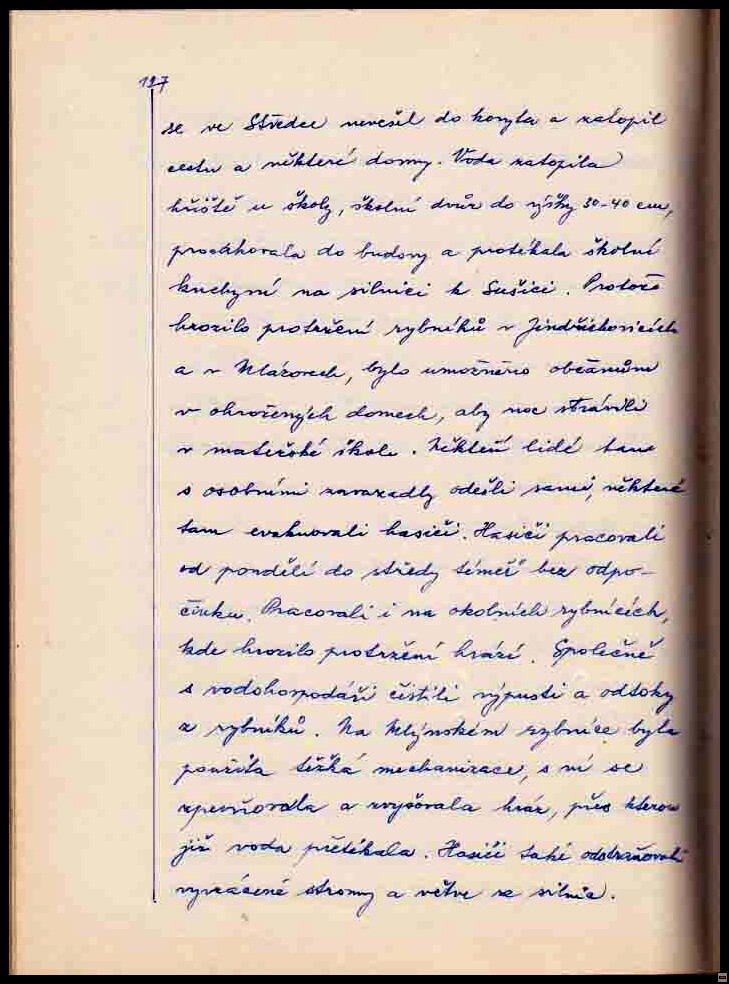 197
se ve Středce nevešel do koryta a zatopil
cestu a některé domy. Voda zatopila
hřiště u školy, školní dvůr do výšky 30-40 cm,
prosakovala do budovy a protékala školní
kuchyní na silnici k Sušici. Protože
hrozilo protržení rybníků v Jindřichovicích
a v Mlázovech, bylo umožněno občanům
v ohrožených domech, aby noc strávili
v mateřské škole. Někteří lidé tam
s osobními zavazadly odešli sami, některé
tam evakuovali hasiči. Hasiči pracovali
od pondělí do středy téměř bez odpo-
činku. Pracovali i na okolních rybnících,
kde hrozilo protržení hrází. Společně
s vodohospodáři čistili výpusti a odtoky
z rybníků. Na Mlýnském rybníce byla
použita těžká mechanizace, s ní se
zpevňovala a zvyšovala hráz, přes kterou
již voda přetékala. Hasiči také odstraňovali
vyvrácené stromy a větve ze silnic.